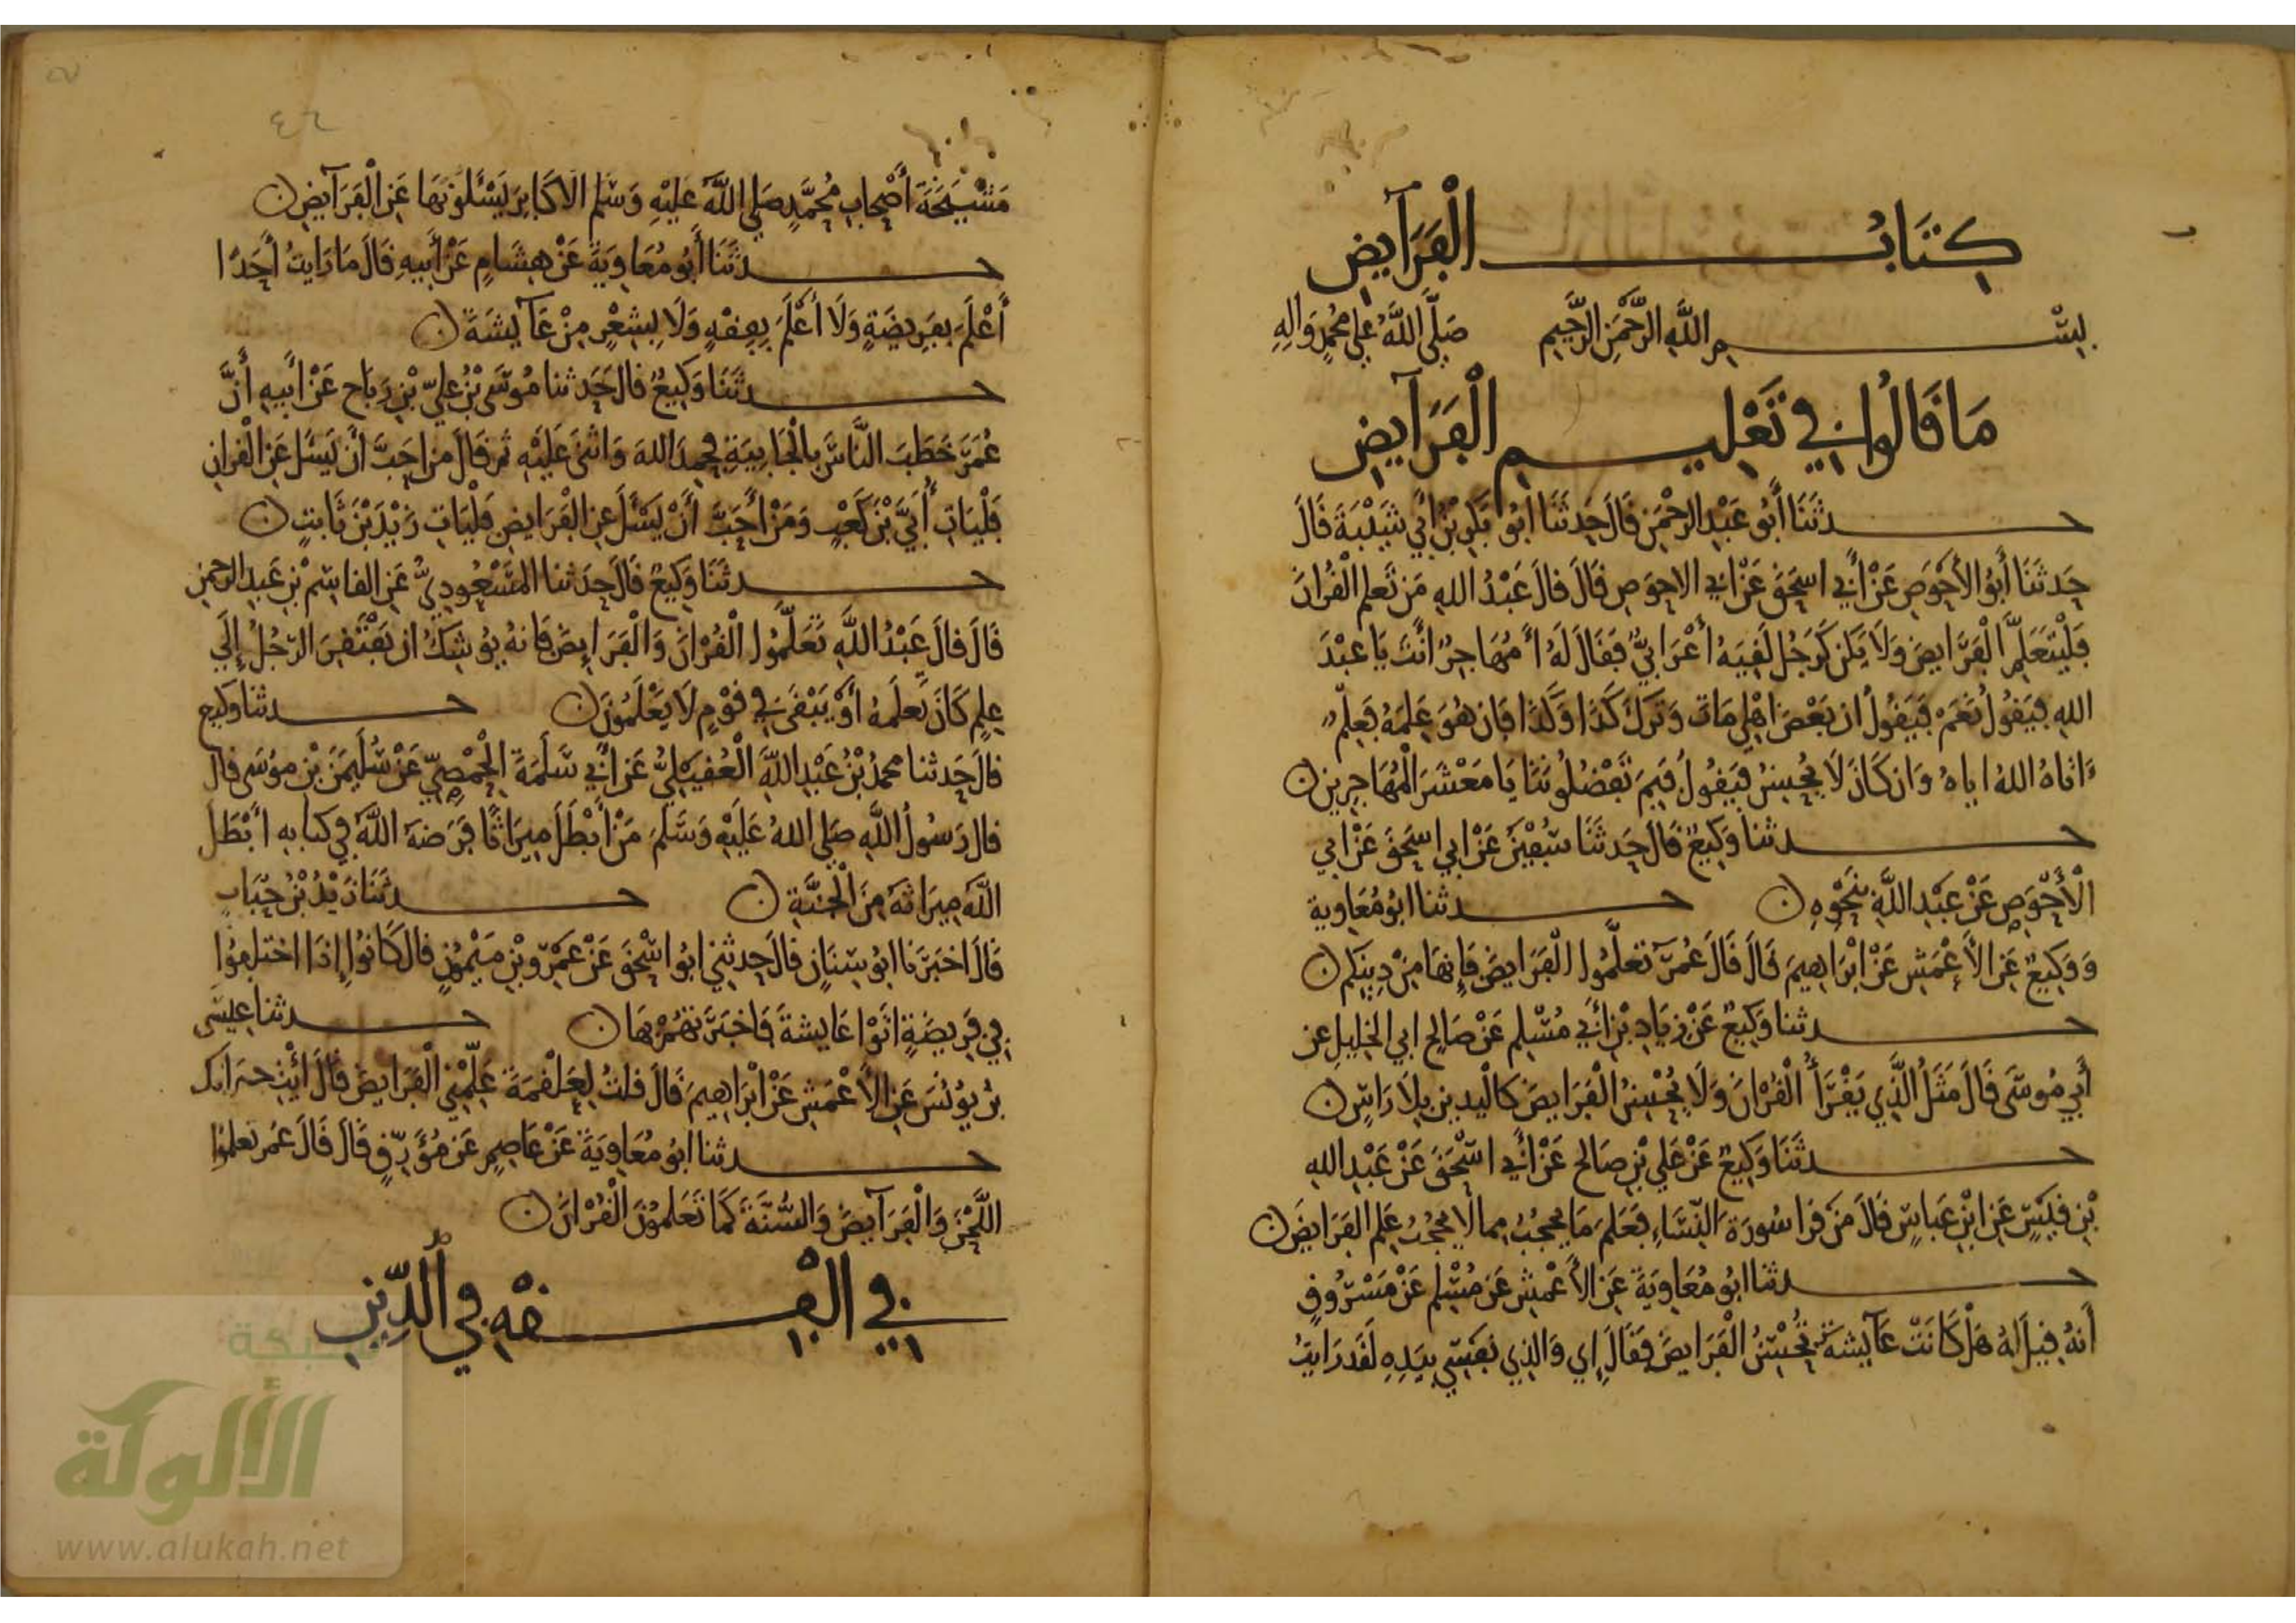 كِتَابُ الْفَرَآيِضِ
بِسْمِ اللَّهِ الرَّحْمَنِ الرَّحِيمِ صَلَّى اللَّهُ عَلَى مُحَمَّدٍ وَالِهِ
مَا قَالُوا فِي تَعْلِيمِ الْفَرَآيِضِ
حدثَنَا أَبُو عَبْدِ الرحْمَنِ قَالَ حَدثَنَا أبُو بَكْرِ بْنُ أَبِي شَيْبَةَ قَالَ
حَدثَنَا أَبُو الأَحْوَصِ عَنْ أَبِي اسحَقَ عَنْ ابي الاحوَصِ قَالَ قالَ عَبْدُ اللهِ مَن تَعلم الْقُرانَ
فَلْيَتَعَلَّمِ الْفَرَايضَ وَلَا يَكن كَرَجُل لَقِيَهُ أَعْرَابيٌّ فَقَالَ لَهُ أَمُهَاجِرٌ أَنْتَ يَا عبْدَ
اللهِ فيَقُولُ نَعَمْ فَيَقُولُ ان بَعْضَ اهْلِي مَاتَ وَتَرَكَ كَذَا وَكَذَا فَان هُوَ عَلِمَهُ فَعِلْمٌ
ءَاتَاهُ اللهُ اياهُ وَان كَانَ لَا يُحْسِنُ فيَقُولُ فَبِمَ تَفْضُلُونَنَا يَا مَعْشَرَ الْمُهَاجِرِين
حدثنا وَكِيعٌ قَالَ حَدثَنَا سُفْيَنُ عَنْ ابي اسْحَقَ عَنْ ابي
الْأَحْوَصِ عَنْ عَبْدِ اللَّهِ بِنَحْوِهِ حدثنا ابُو مُعَاوية
وَوَكِيعٌ عَنِ الأَعْمَشِ عَنْ ابْرَاهِيمَ قَالَ قَالَ عُمَرُ تَعلَّمُوا الْفَرَايضَ فَإِنهَا مِنْ دِينكم
حدثنا وَكِيعٌ عَنْ زِيَادِ بْنِ أَبِي مُسْلِمٍ عَنْ صَالِحٍ ابي الخَلِيلِ عن
أَبِي مُوسَى قَالَ مَثَلُ الَّذِي يَقْرَأُ الْقُرْانَ وَلَا يُحْسِنُ الْفَرَايضَ كالْيدينِ بِلَا رَاسٍ
حدثَنَا وَكِيعٌ عَنْ عَلِي بْنِ صَالحٍ عَنْ أَبِي اسْحَقَ عَنْ عَبْدِ اللهِ
بْنِ قَيْسٍ عَنِ ابْنِ عَبَاسٍ قَالَ مَنْ قَرا سُورَةَ النِّسَاءِ فَعَلِمَ مَا يُحْجَبُ مِما لا يُحْجَبُ عَلِم الفَرَايضَ
حدثنا ابُو مُعَاوِيَةَ عَنِ الأَعْمَشِ عَن مُسْلِمٍ عَنْ مَسْرُوقٍ
أَنهُ قِيلَ لهُ هَلْ كَانَتْ عَآيِشَةُ تُحْسِنُ الْفَرَايضَ فَقَالَ إِي وَالذِي نَفسِي بيَدِهِ لَقَد رَايتُ
مَشْيَخَةَ أَصْحَابِ مُحَمَّدٍ صَلى اللَّهُ عَليْهِ وَسَلم الأكَابِرَ يَسْئَلُونَهَا عَنِ الْفَرَآيضِ
حدثَنَا أَبُو مُعَاوِيَةَ عَنْ هِشَامٍ عَنْ أَبيهِ قَالَ مَا رَايتُ أَحَدًا
أَعْلَمَ بفَرِيضَةٍ وَلَا أَعْلَمَ بِفِقْهٍ وَلَا بِشِعْرٍ مِنْ عَآيشَةَ
حدثَنَا وَكِيعٌ قال حَدثنا مُوسَى بْنُ عَليّ بْنِ رَبَاحٍ عَنْ ابيهِ أَنَّ
عُمَرَ خَطَبَ النَّاسَ بالْجَابِيَةِ فحَمِدَ اللهَ وَاثنَى عَلَيْهِ ثم قَالَ من احَبَّ أَن يَسْئَل عَنِ الْقُرانِ
فَلْيَاتِ أُبَيَّ بْنَ كَعْبٍ وَمَنْ أَحَبَّ أَنْ يَسْئَلَ عنِ الْفَرَايضِ فَلْيَاتِ زَيْدَ بْنَ ثَابتٍ
حدثَنَا وَكِيعٌ قَالَ حدَثنا المَسْعُودِيُّ عَنِ القاسِمْ بْنِ عَبدِ الرحمنِ
قَالَ قالَ عَبْدُ اللَّهِ تَعَلَّمُوا الْقُرْانَ وَالْفَرَايضَ فَانهُ يُوشِكُ ان يَفْتَقِرَ الرّجُلُ إِلَى
عِلمٍ كَانَ يَعلَمهُ أَوْ يَبْقَى فِي قَوْمٍ لَا يَعْلَمُونَ حدثنا وَكيع
قالَ حَدثنا محمدُ بْنُ عَبْدِ اللَّهِ الْعُقيْليُّ عَن أَبي سَلَمَةَ الْحِمْصِيّ عَنْ سُلَيمَنَ بْنِ مُوسَى قال
قال رَسُولُ اللَّهِ صَلى اللهُ عَلَيْهِ وَسَلمَ مَنْ أَبْطَلَ مِيرَاثًا فَرَضهُ اللَّهُ فِي كتابِهِ أَبْطَلَ
اللَّهُ مِيرَاثهُ مِنَ الْجَنَّةِ حدثَنَا زَيْدُ بْنُ حُبَابٍ
قَالَ اخبَرَنا ابُو سِنَانٍ قالَ حدثنِي ابُو اسْحَقَ عَنْ عَمْرِو بْنِ مَيْمُونٍ قال كَانُوا إِذَا اختلفوا
فِي فَرِيضَةٍ اتَوْا عَايشةَ فَاخبَرَتهُمْ بهَا حدثنا عِيسَى
بْنُ يُونُسَ عَنِ الأَعْمَشِ عَنْ ابْرَاهِيمَ قَالَ قلتُ لِعَلْقمَةَ عَلِّمْنِي الْفَرَايضَ قَالَ أَئْتِ جيرَانك
حدثنا ابُو مُعَاوِيَةَ عَنْ عَاصِمٍ عَن مُوَرِّقٍ قَالَ قَالَ عُمَر تعلموا
اللَّحْنَ وَالْفَرَآيضَ وَالسُّنَّةَ كَمَا تَعَلمُونَ الْقُرْانَ
فِي الْفِقْهِ فِي الدِّينِ
شبكة
الألوكة
www.alukah.net